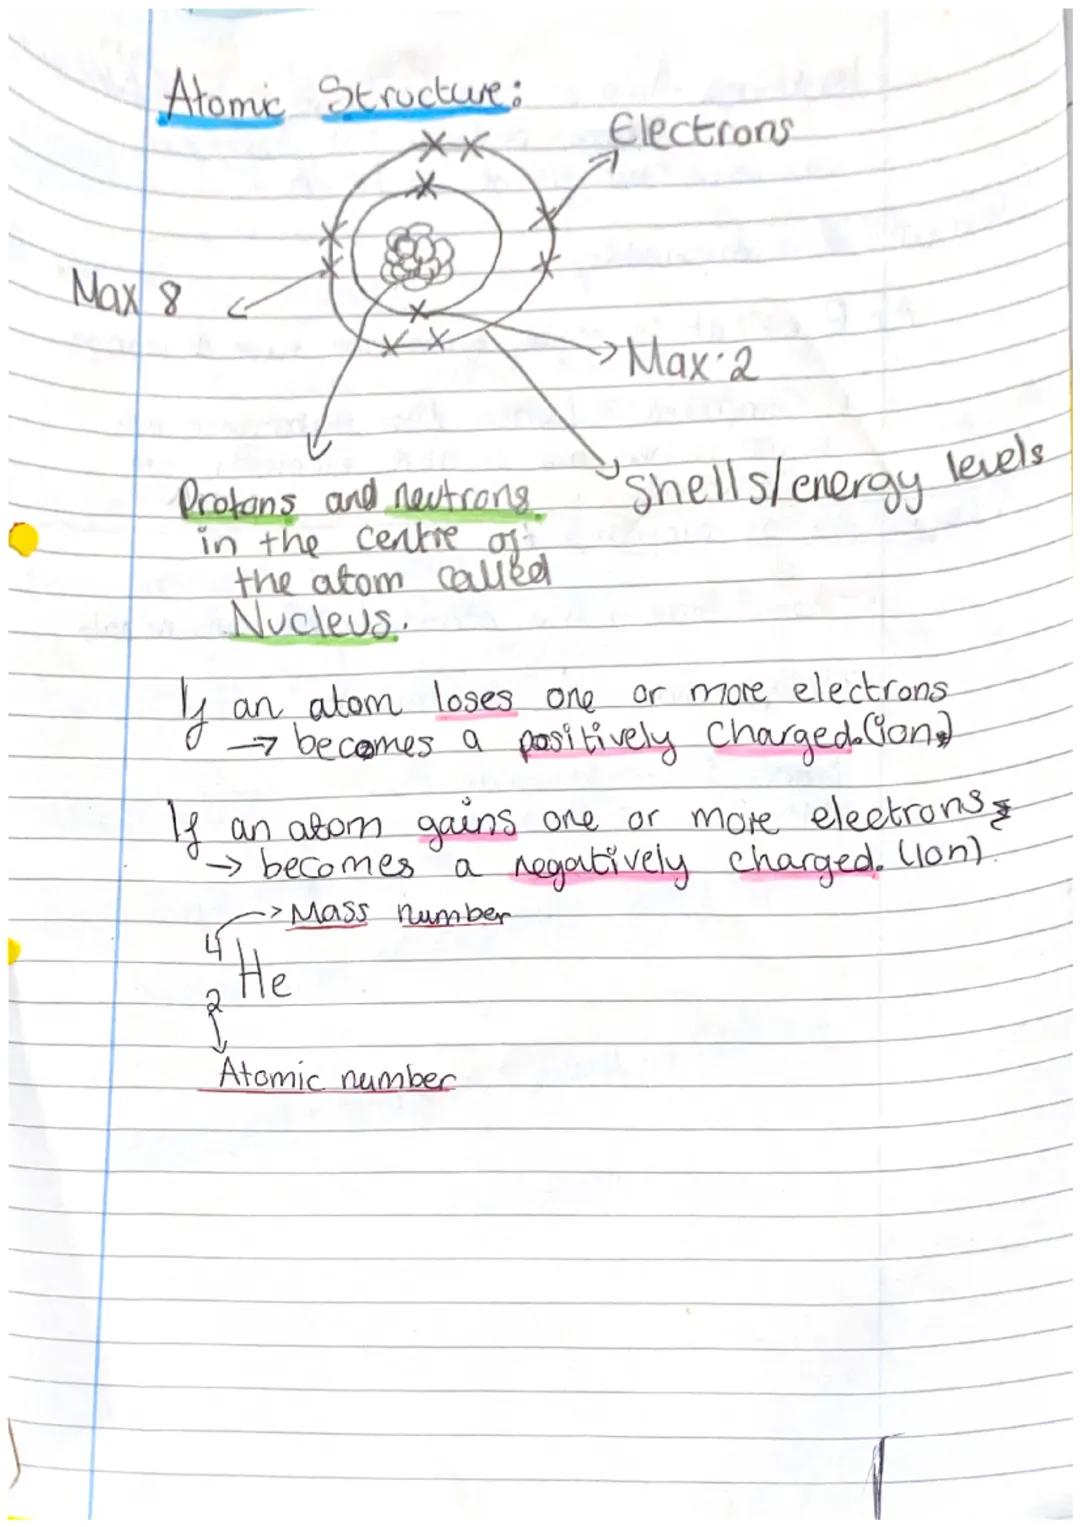 Atomic Structure:
Electrons
Max 8
Max 2
Shells/energy levels
Protons and neutrons
in the centre of
the atom called
Nucleus.
If an atom loses one or more electrons
→ becomes a positively charged. (ion)
If an atom gains one or more electrons
→ becomes a negatively charged. (ion)
→ Mass number
4
He
2
Atomic number